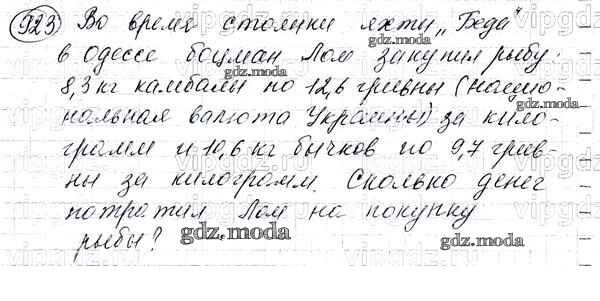 923 Во время стоянки яхты „Беда"
в Одессе боцман Лом закупил рыбу.
8,3 кг камбалы по 12,6 гривны (нацио-
нальная валюта Украины) за кило-
грамм и 10,6 кг бычков по 9,7 грив-
ны за килограмм. Сколько денег
потратил Лом на покупку
рыбы?
gdz.moda
gdz.moda
gdz.moda
gdz.moda
gdz.moda
gdz.moda